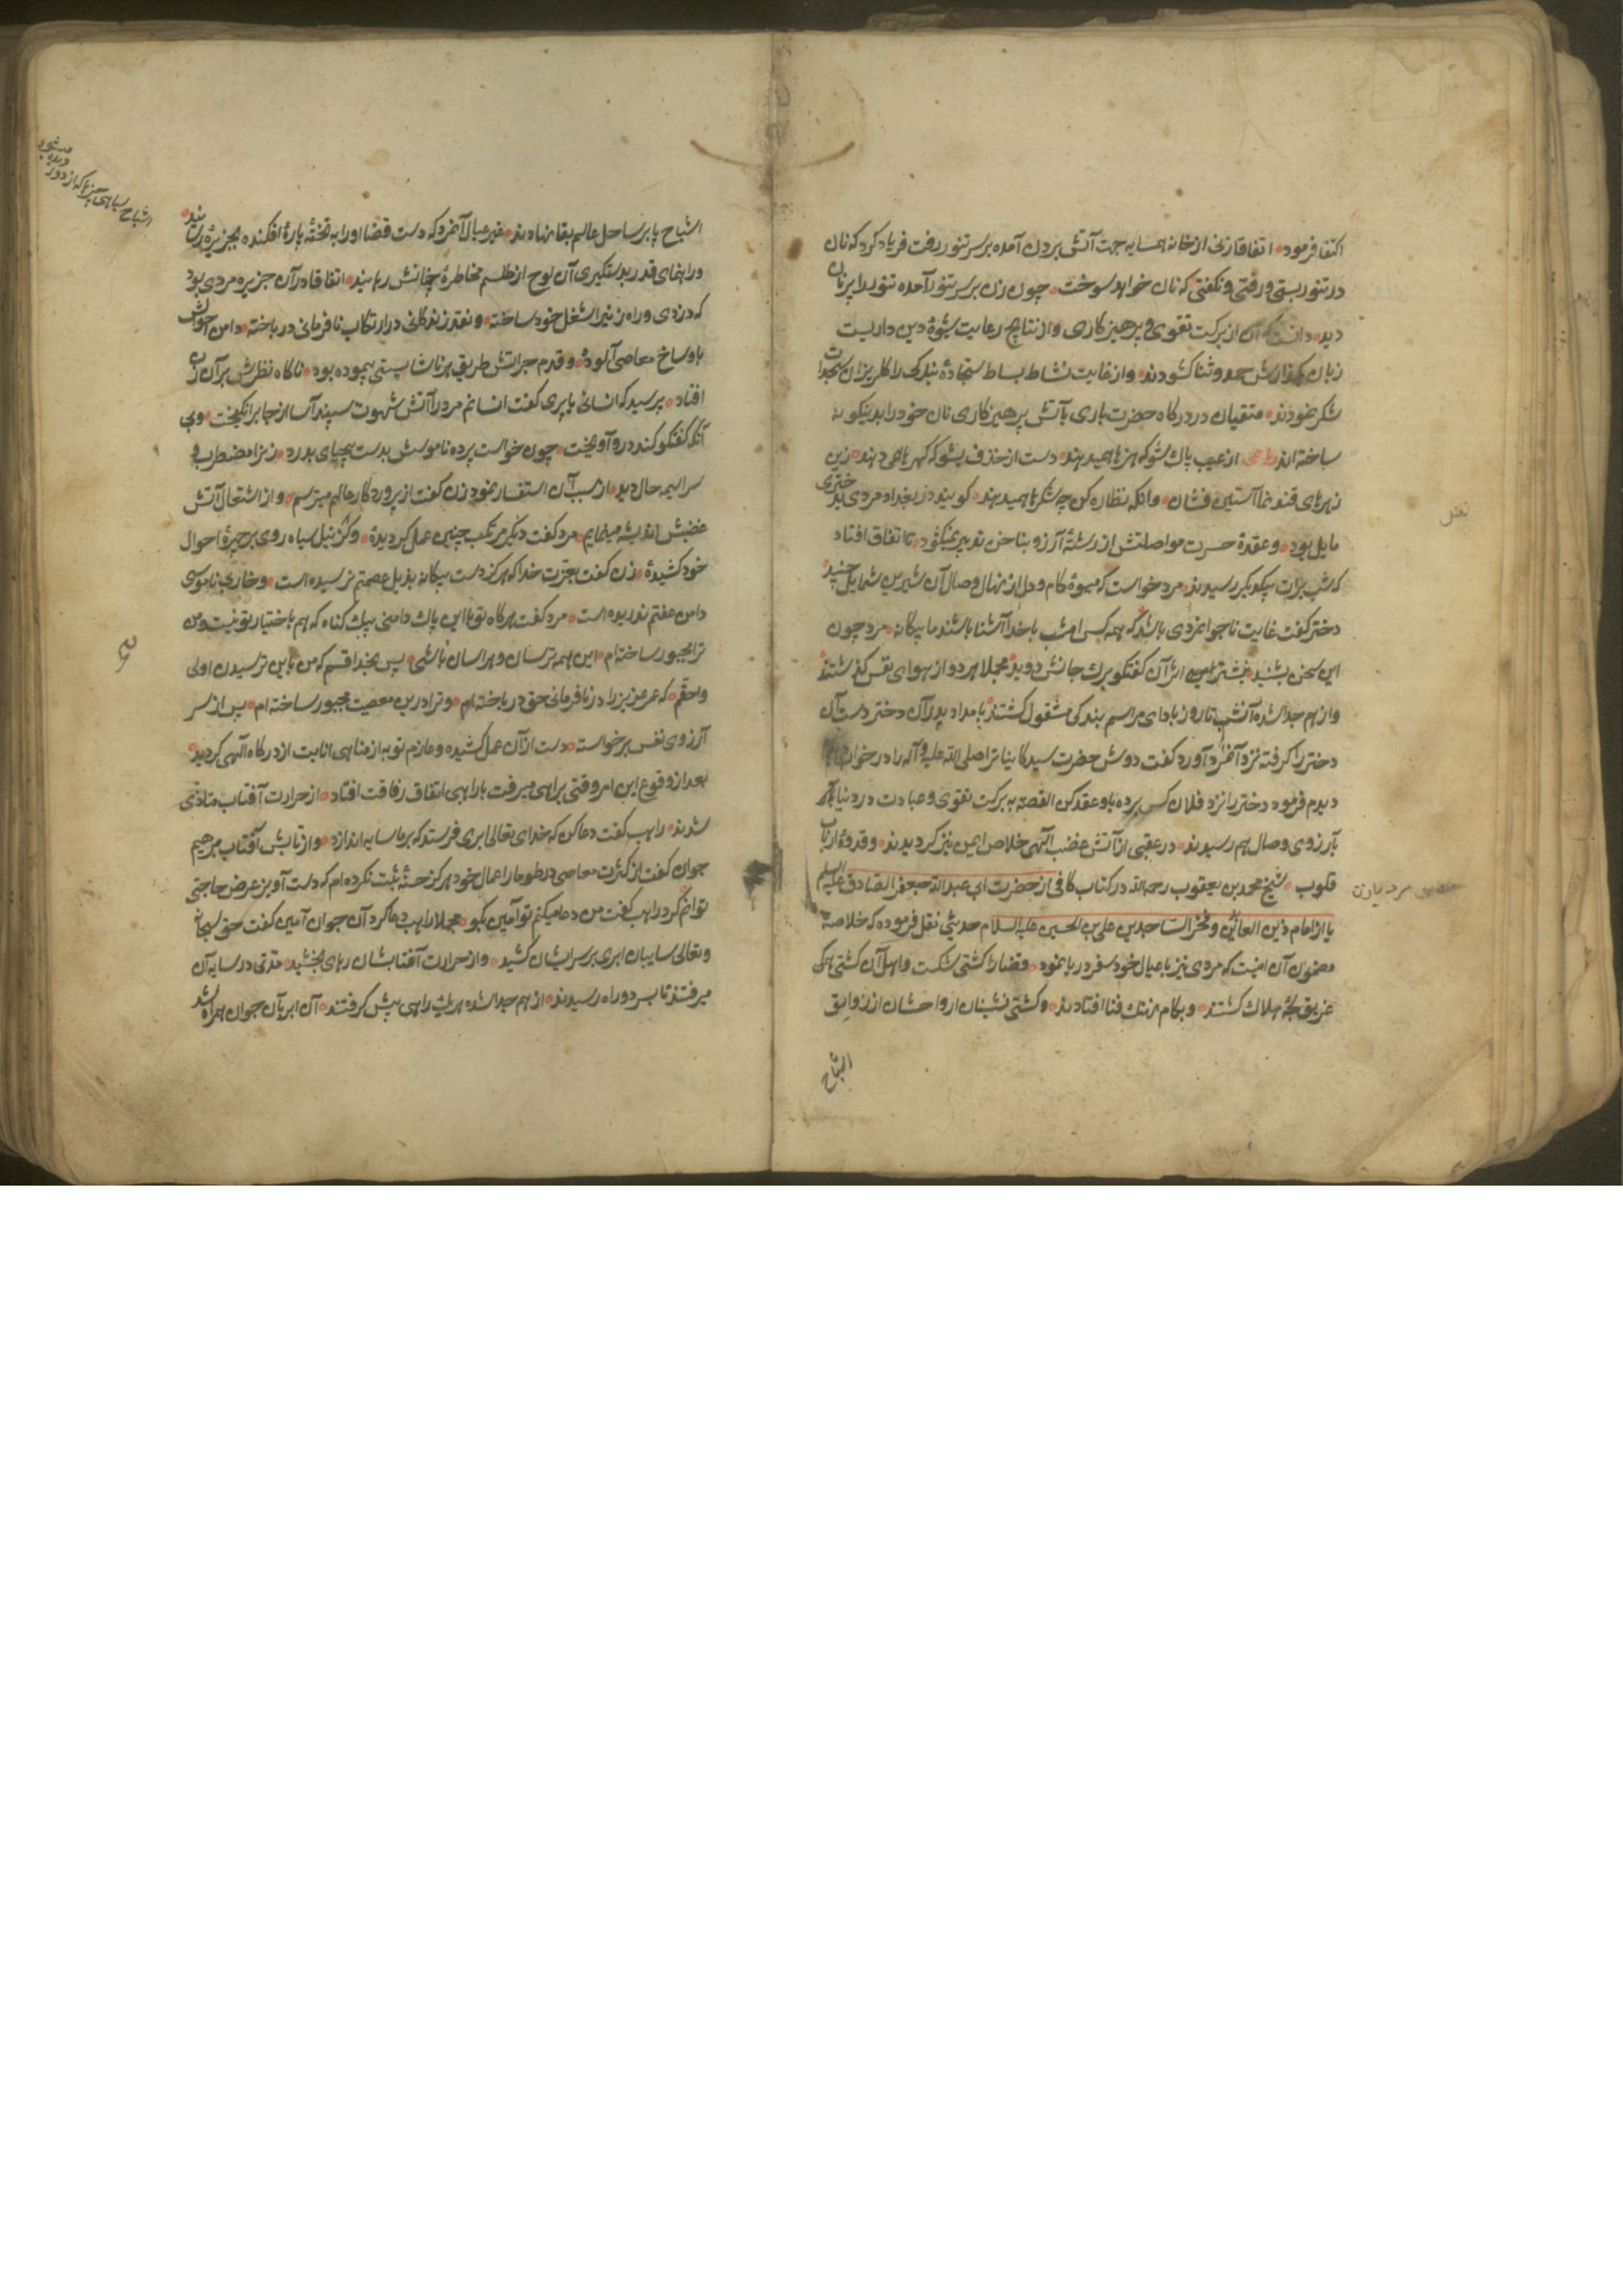 اکتفا فرمود اتفاقا زنی از خانه همسایه جهت آتش بردن آمده بر سر تنور رفت فریاد کرد که نان
در تنور بستی و رفتی و نگفتی که نان خواهد سوخت چون زن بر سر تنور آمده تنور را پر نان
دید دانست که آن از برکت تقوی و پرهیزکاری و از نتایج رعایت شیوهٔ دین داریست
زبان بحمد و ثنا کشودند و از غایت نشاط بساط سجادهٔ را کلریزان سجدات
شکر نمودند متقیان در درکاه حضرت باری بآتش پرهیزکاری نان خود را بدینکونه
ساخته‌اند از عیب پاک شو که هنرها همیدهند دست از خذف بشو که کهرها همی دهند زین
زهرهای قند نما آستین فشان وانکه نظاره کن چه شکرها همیدهند کویند در بغداد مردی بدختری
مایل بود و عقدهٔ حسرت مواصلتش از رشتهٔ آرزو بناخن تدبیر نمیکشود تا اتفاق افتاد
که شب برات بیکدیکر رسیدند مرد خواست که میوهٔ کام دل از نهال وصال آن شیرین شمایل چیند
دختر کفت غایت ناجوانمردی باشد که همه کس امشب با خدا آشنا باشند ما بیکانه مرد چون
این سخن بشنید اثر آن کفتکو برک جانش دوید مجملا هر دو از هوای نفس کذشتند
و از هم جدا شده آنشب تا روز بادای مراسم بندکی مشغول کشتند بامداد پدر آن دختر دست آن
دختر را کرفته نزد آنمرد آورد کفت دوش حضرت سید کاینات را صلی الله علیه و آله را در خواب
دیدم فرمود دختر را نزد فلان کس برده باو عقد کن القصه به برکت تقوی و عبادت در دنیا
بآرزوی وصال هم رسیدند در عقبی از آتش غضب الهی خلاص ایمن نیز کردیدند و قدوهٔ ارباب
قلوب شیخ محمد بن یعقوب رحمه الله در کتاب کافی از حضرت ابی عبد الله جعفر الصادق علیه السلام
یا از امام زین العابدین و فخر الساجدین علی بن الحسین علیه السلام حدیثی نقل فرموده که خلاصه
مضمون آن اینست که مردی نیز با عیال خود سفر دریا نمود و قضا را کشتی شکست و اهل آن کشتی همکی
غریق لجهٔ هلاک کشتند و بکام نهنک فنا افتادند و کشتی نشینان ارواحشان از زوارق
اشباح
مرد با زن
اشباح پا بر ساحل عالم بقا نهادند غیر عیال آنمرد که دست قضا او را به تخته پارهٔ افکنده بجزیرهٔ رسانید
و راهنمای قدر بدستکیری آن لوح از طلسم مخاطرهٔ چنانش رهانید اتفاقا در آن جزیره مردی بود
که دزدی و راه زنی را شغل خود ساخته و نقد زندکانی در ارتکاب نافرمانی در باخته دامن احوالش
باوساخ معاصی آلوده و قدم جرأتش طریق هر ناشایستی پیموده بود ناکاه نظرش بر آن زن
افتاد پرسید که انسانی یا پری کفت انسانم مرد را آتش شهوت سپند آسا از جا برانکیخت و بی
آنکه کفتکو کند درو آویخت چون خواست پرده ناموسش بدست بیحیای بدرد زنرا مضطرب و
سراسیمه حال دید از سبب آن استفسار نمود زن کفت از پروردکار عالم میترسم و از اشتعال آتش
غضبش اندیشه مینمایم مرد کفت دیکر مرتکب چنین عمل کردیدهٔ و کژ نیل سیاه روی بر چهرهٔ احوال
خود کشیدهٔ زن کفت بعزت خدا که هرکز دست بیکانه بذیل عصمتم نرسیده است و خار بی ناموسی
دامن عفتم ندریده است مرد کفت هرکاه تو با این پاک دامنی بیک کناه که هم باختیار تو نیست و من
ترا مجبور ساخته‌ام این همه ترسان و هراسان باشی پس بخدا قسم که من باین ترسیدن اولی
و احقم که عمر عزیز را در نافرمانی حق در باخته‌ام و ترا درین معصیت مجبور ساخته‌ام پس از سر
آرزوی نفس برخواسته دست از آن عمل کشیده و عازم توبه از مناهی انابت از درکاه الهی کردید
بعد از وقوع این امر وقتی براهی میرفت با راهبی اتفاق رفاقت افتاد از حرارت آفتاب متاذی
شدند راهب کفت دعا کن که خدای تعالی ابری فرستد که بر ما سایه اندازد و از تابش آفتاب برهیم
جوان کفت از کثرت معاصی در طومار اعمال خود هرکز حسنهٔ ثبت نکرده‌ام که دست آویز عرض حاجتی
توانم کرد راهب کفت من دعا میکنم تو آمین بکو مجملا راهب دعا کرد آن جوان آمین کفت حق سبحانه
و تعالی سایبان ابری بر سرایشان کشید و از حرارت آفتابشان رهای بخشید مدتی در سایه آن
میرفتند تا بسر دو راه رسیدند از هم جدا شده هر یک راهی پیش کرفتند آن ابر با آن جوان همراه شد
اشباح سیاهی چیزها که از دور
دیده میشود